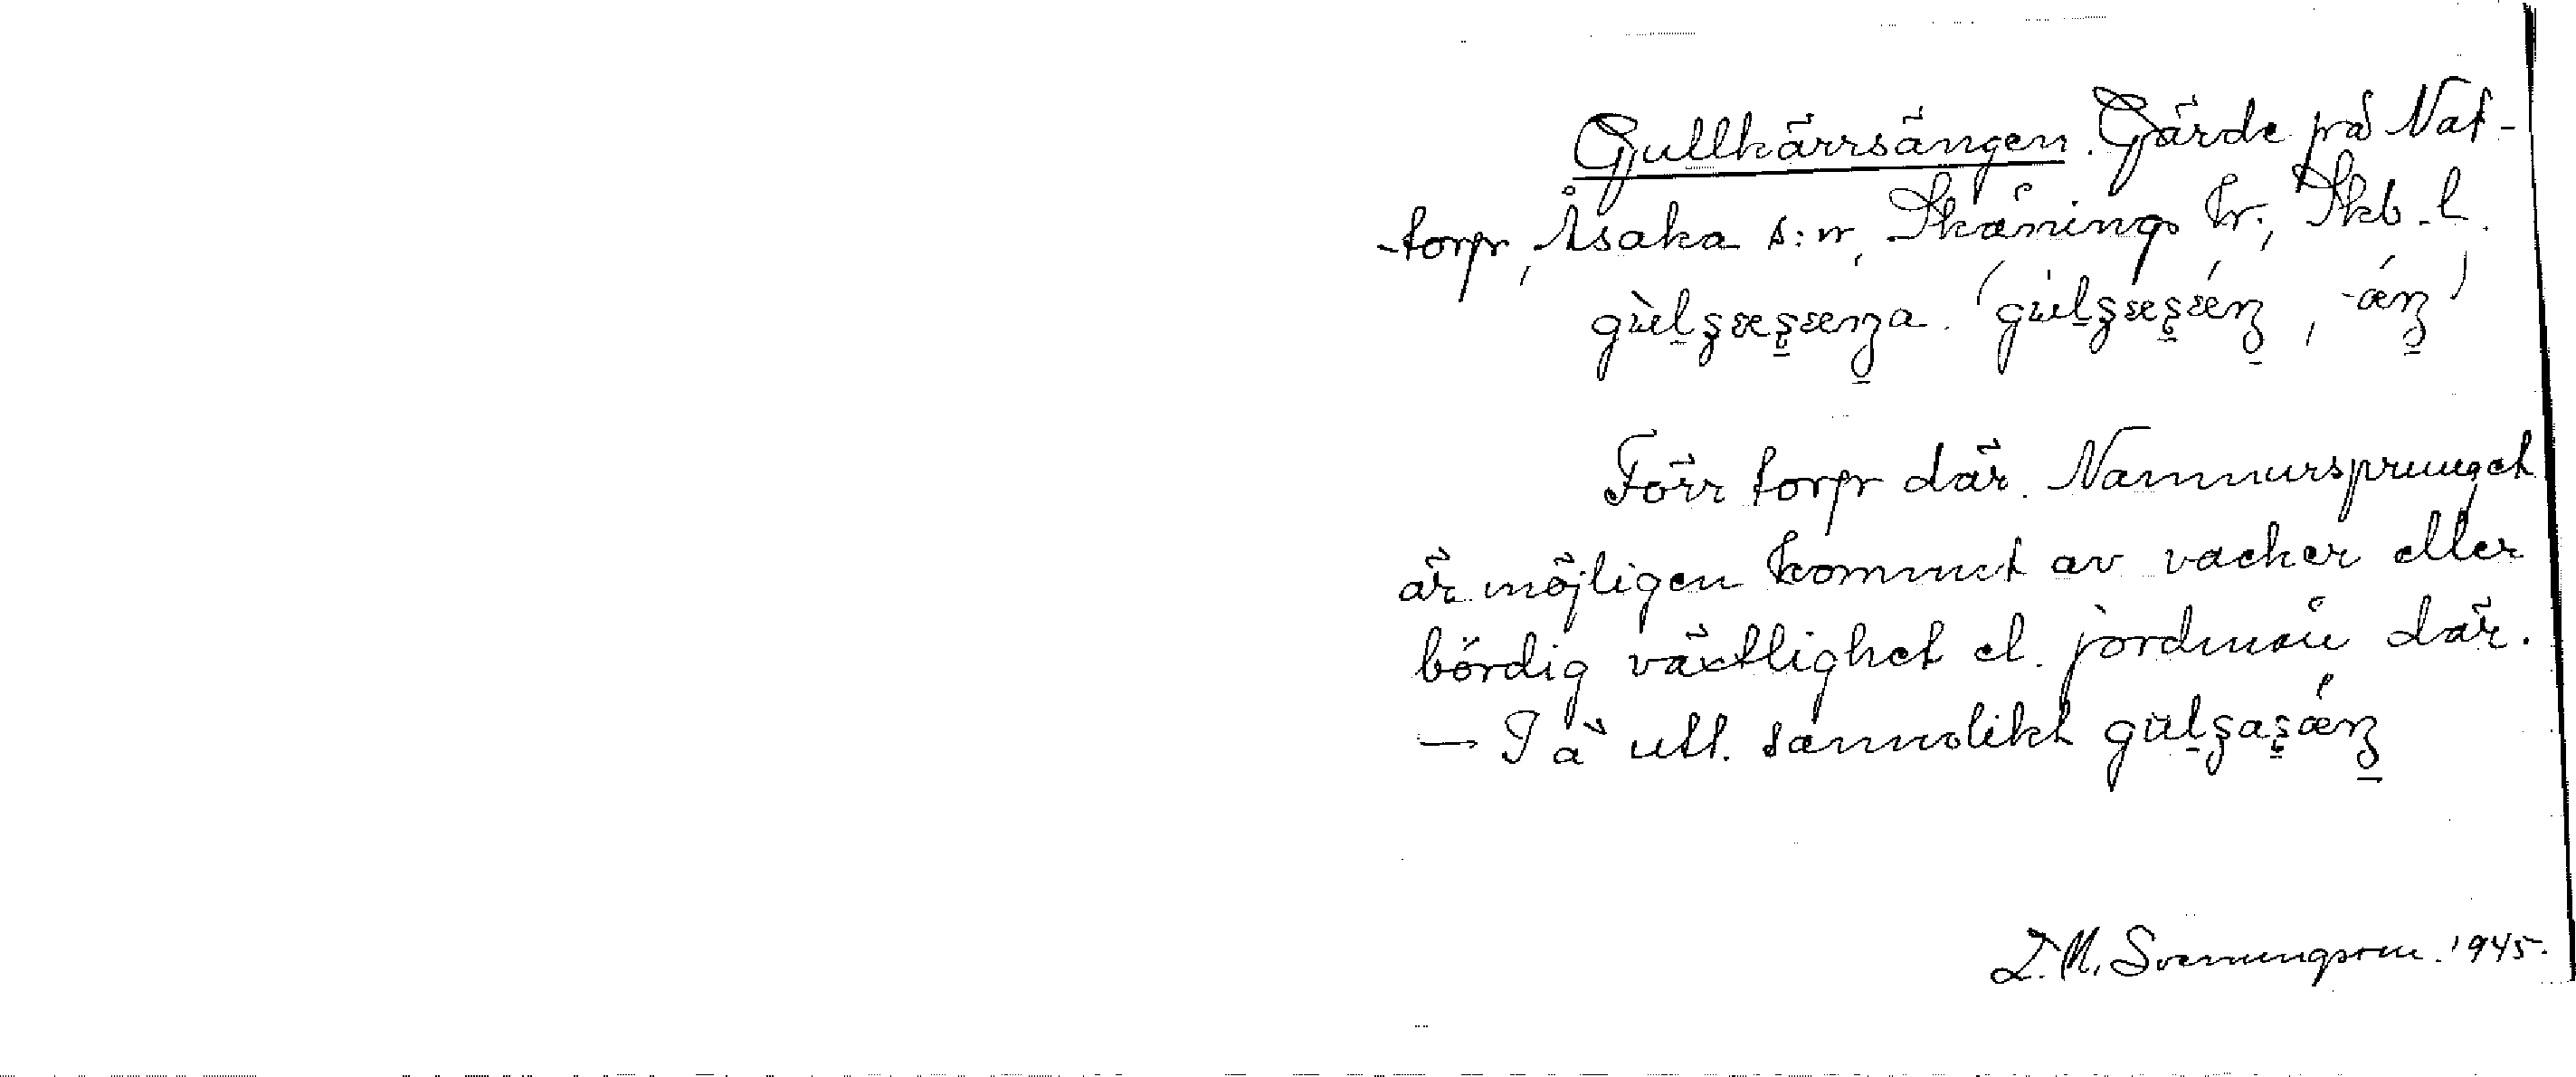 Gullkärrsängen. Gärde på Nat-
-torp, Åsaka s:n, Skånings hr., Skb. l.
gùlʂæʂæŋa. (gùlʂæʂǽŋ, -ǽŋ)
Förr torp där. Namnursprunget
är möjligen kommet av vacker eller
bördig växtlighet el. jordmån där.
— I ä utt. sannolikt gulʂaʂǽŋ
Svenungsson. 1945.